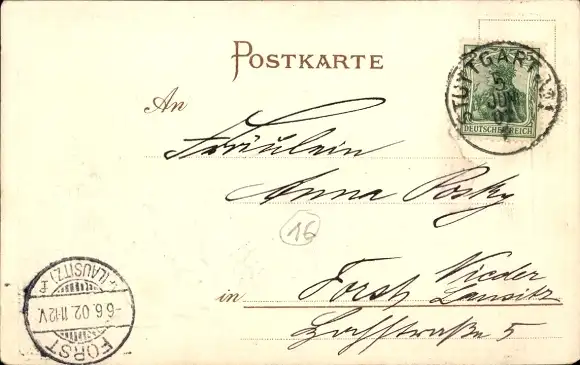 POSTKARTE
STUTTGART
5
JUN
02
DEUTSCHES REICH
An
Fräulein
Anna
16
in Forst Nieder
Lausitz
straße 5
FORST
(LAUSITZ)
-6.6.02.11-12V.